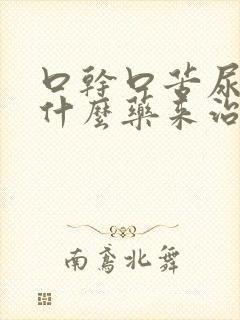 口幹口苦尿
什麼藥来治
南鳶北舞